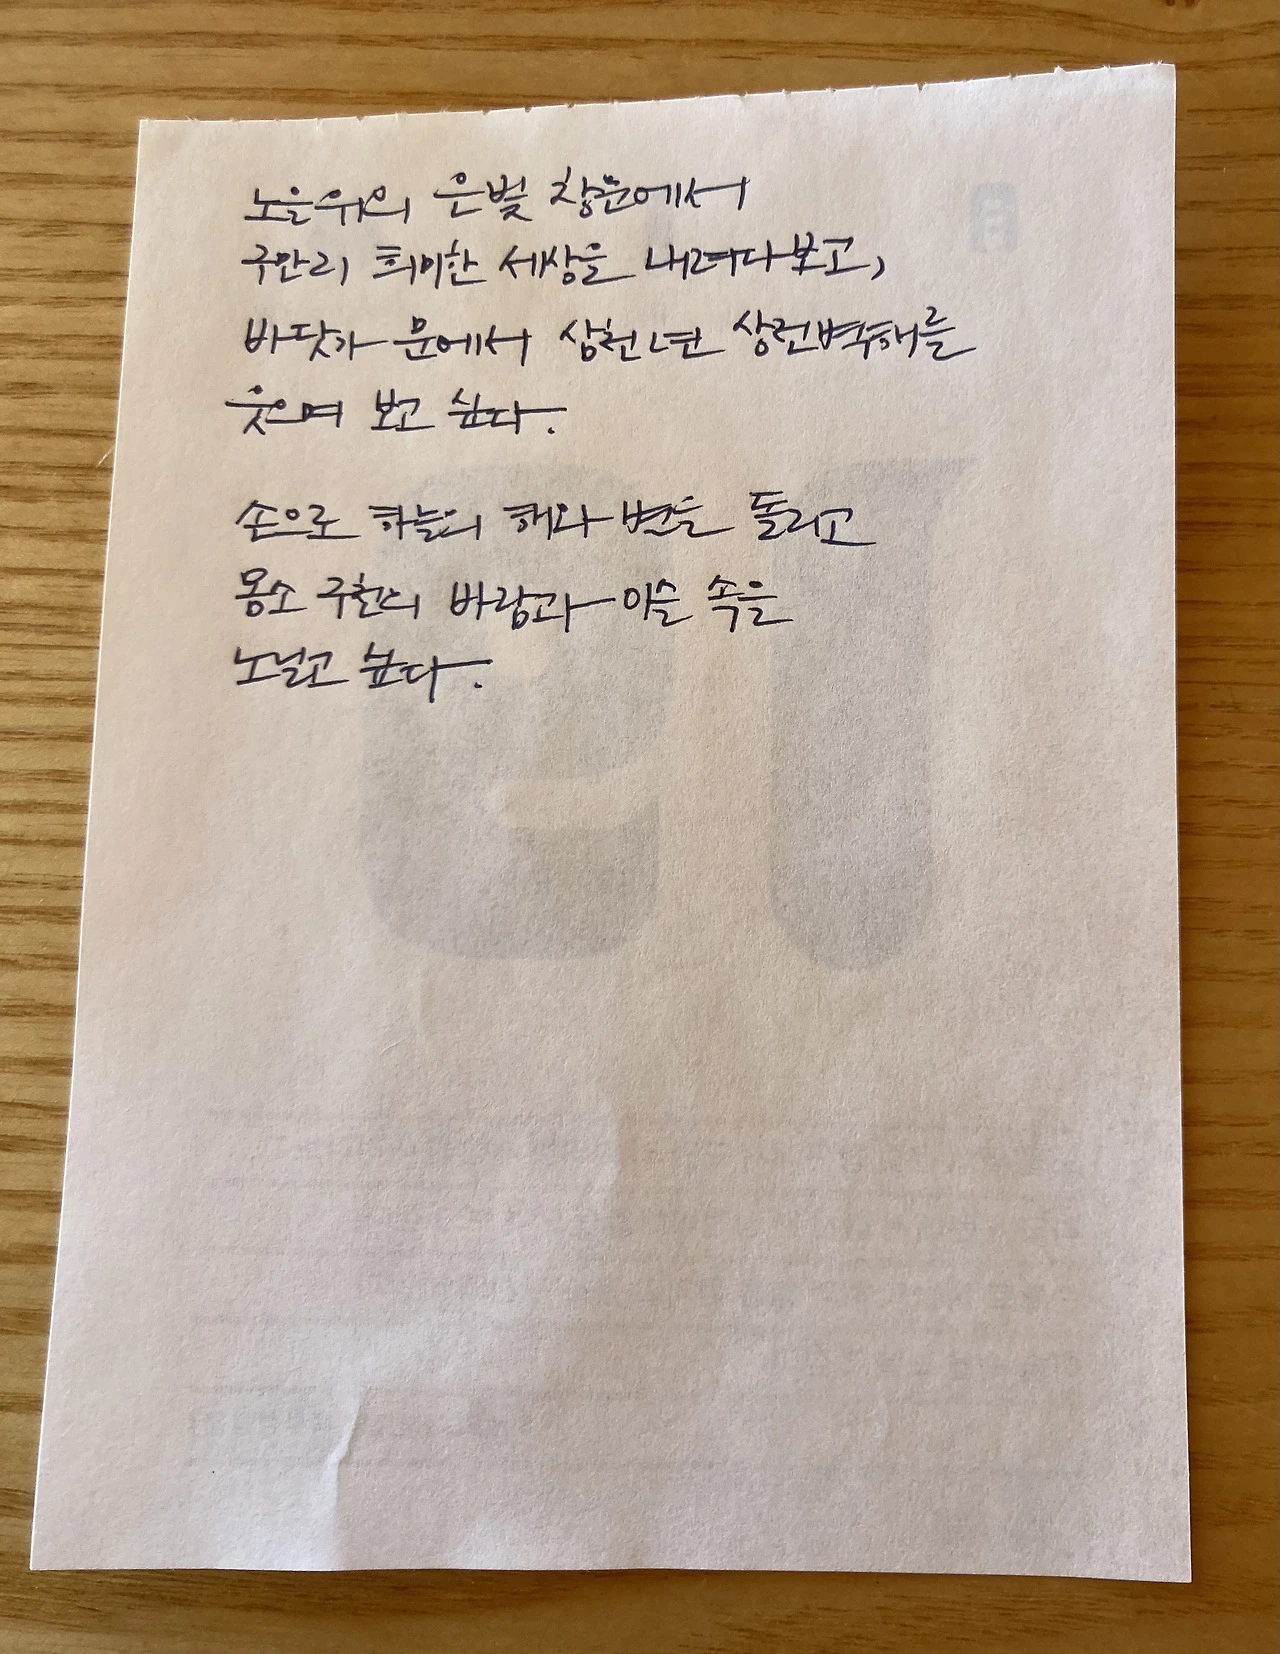 노을위의 은빛 창문에서
구만리 희미한 세상을 내려다보고,
바닷가 문에서 삼천년 상전벽해를
웃으며 보고 싶다.
손으로 하늘의 해와 별을 돌리고
몽소 구천의 바람과 이슬 속을
노닐고 싶다.
月